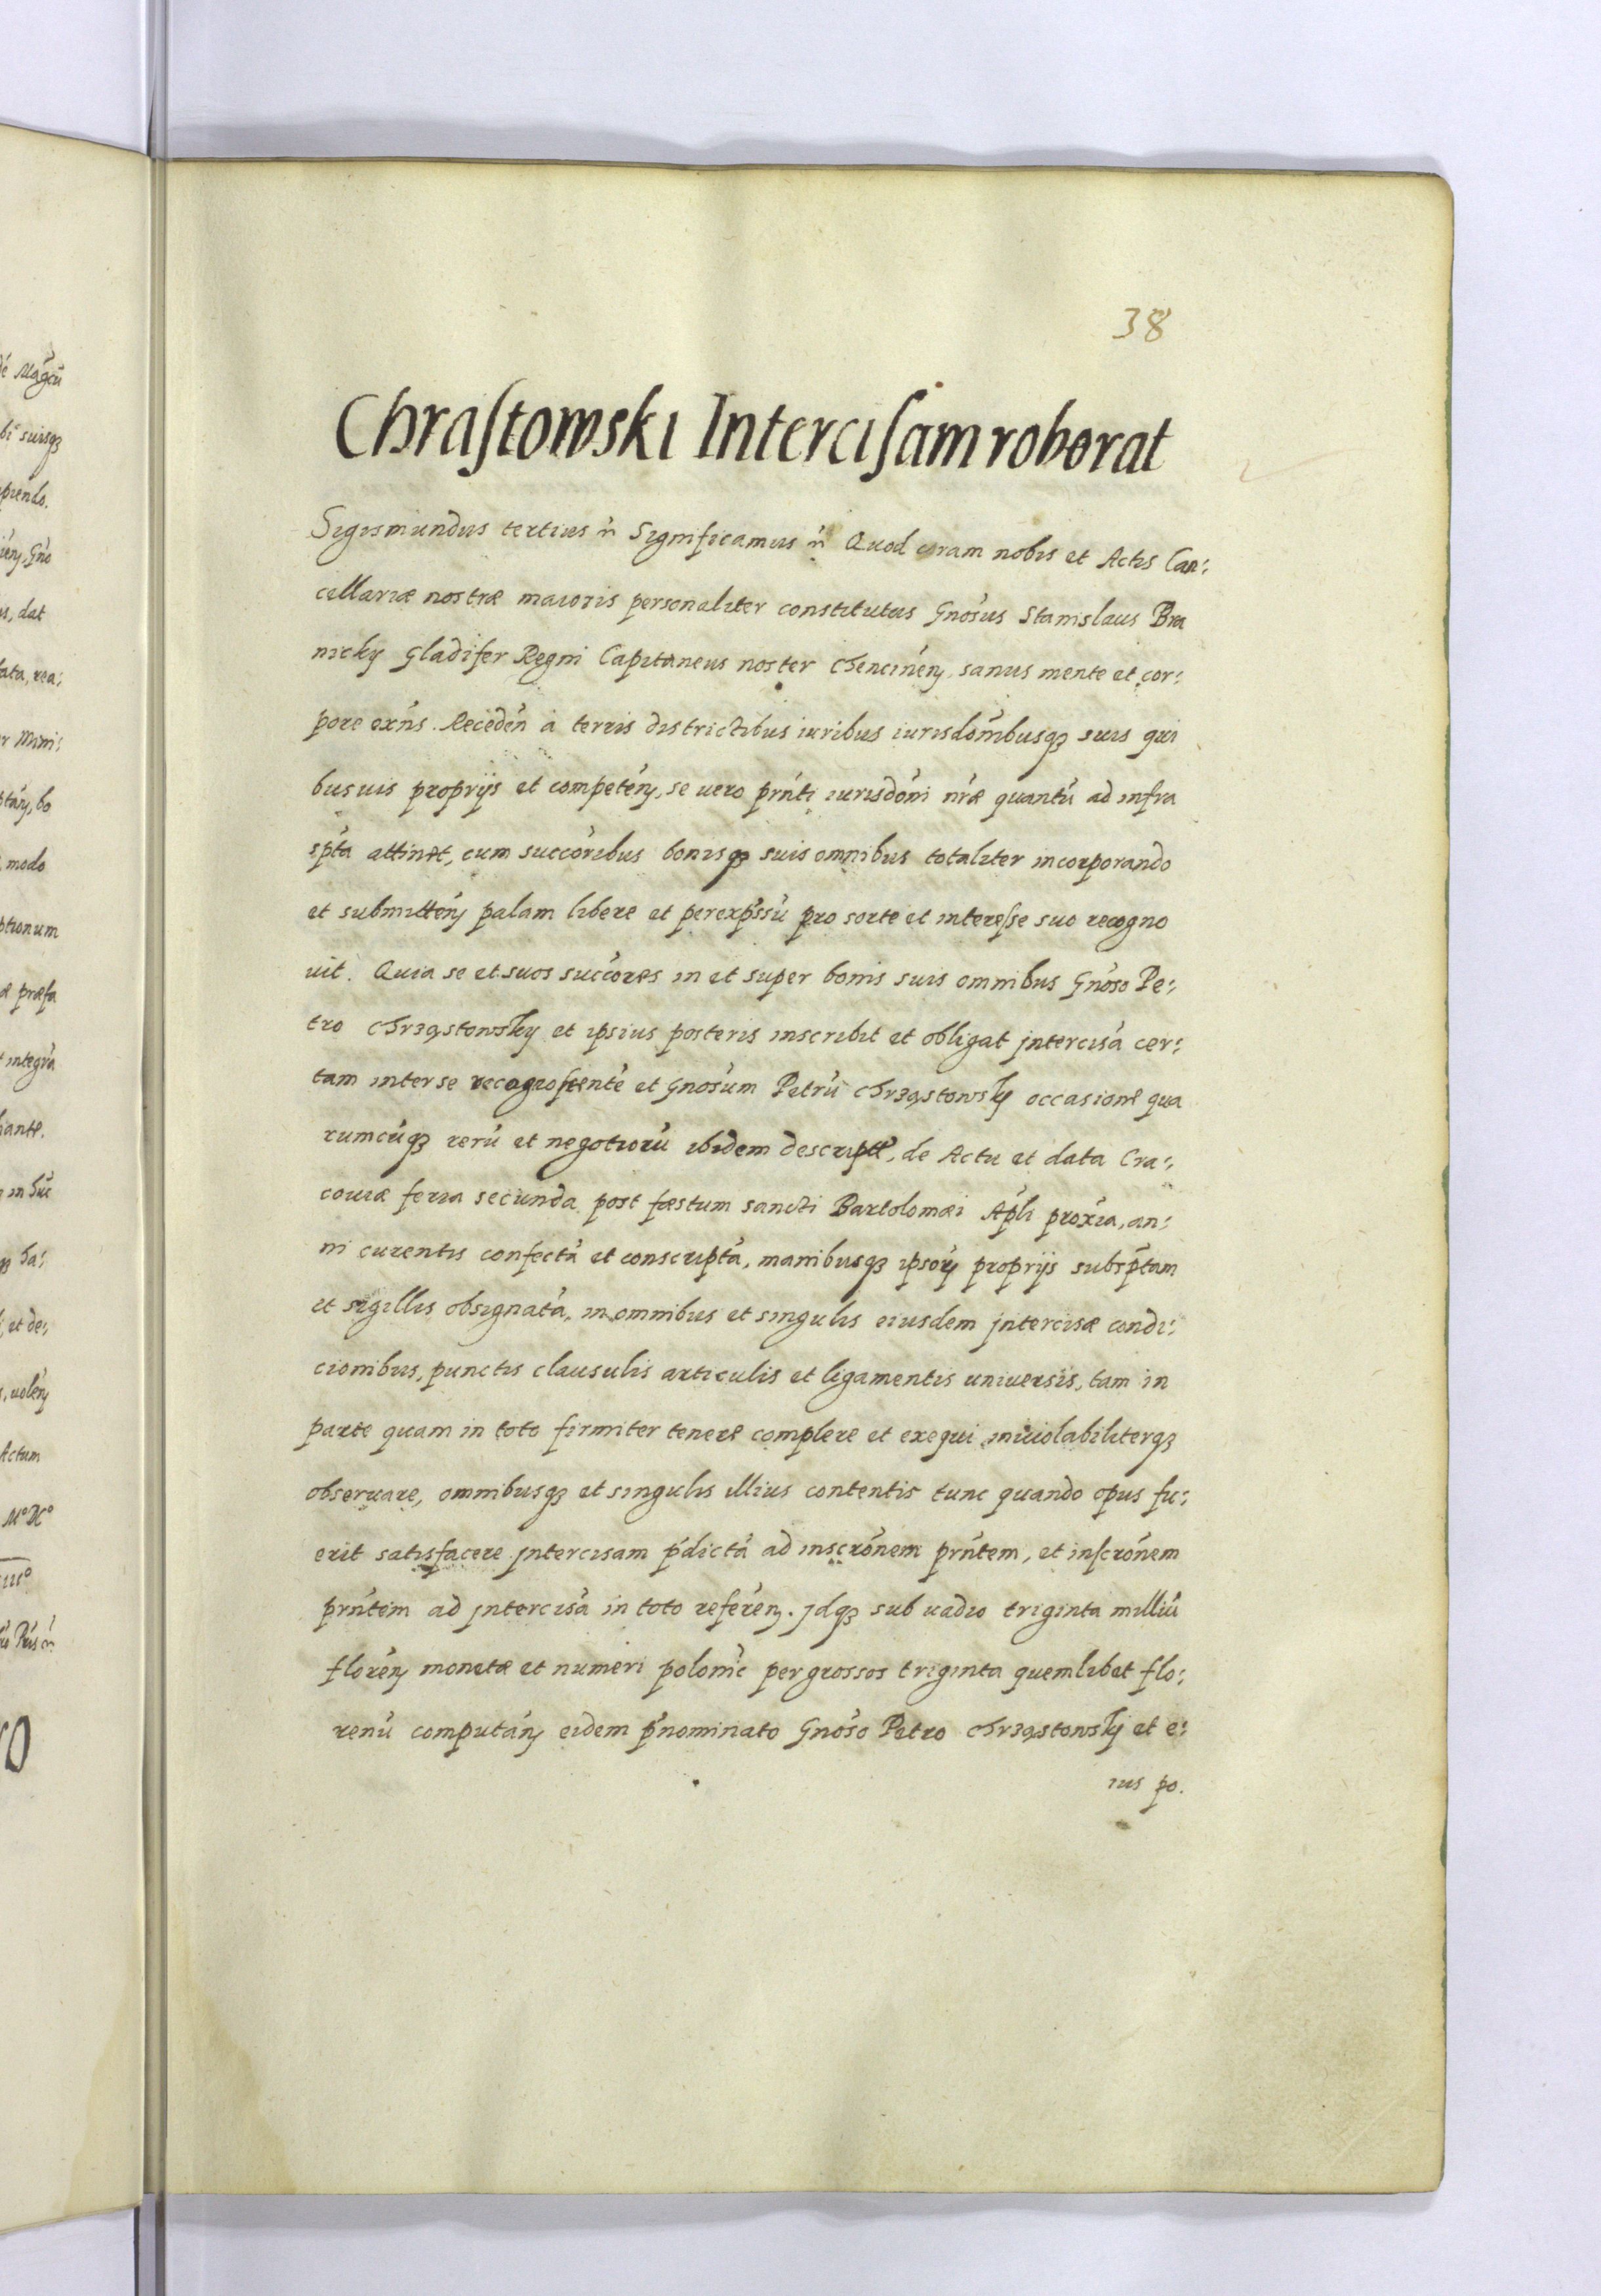 38
Chraſtowski Interciſam roborat
Sigismundus tertius ñ Significamus ñ Quod coram nobis et Actis Can:
cellariæ nostræ maioris personaliter constitutus Gnosus Stanislaus Bra
nicky Gladifer Regni Capitaneus noster Chencineń, sanus mente et cor:
pore exńs. Recedeń a terris districtibus iuribus iurisdōnibusqȝ suis qui
busuis proprijs et competeń, se uero prńti iurisdōni nræ quantū ad infra
sp̄ta attinet, cum succōribus bonisqȝ suis omnibus totaliter incorporando
et submitteń palam libere et perexp̄ssū pro sorte et intereſse suo recogno
uit. Quia se et suos succōres in et super bonis suis omnibus Gnoso Pe:
tro Chrząstowsky et ipsius posteris inscribit et obligat jntercisā cer:
tam inter se recognoſcentē et Gnosum Petrū Chrząstowsky occasione qua
rumcūqȝ rerū et negotiorū ibidem descript, de Actu et data Cra:
couiæ feria secunda post fæstum sancti Bartolomæi Apli proxia, an:
ni curentis confectā et conscriptā, manibusqȝ ipsorȝ proprijs subsp̄tam
et sigillis obsignatā, in omnibus et singulis eiusdem jntercisæ condi:
cionibus, punctis clausulis articulis et ligamentis uniuersis, tam in
parte quam in toto firmiter tenere complere et exequi inuiolabiliterqȝ
obseruare, omnibusqȝ et singulis illius contentis tunc quando opus fu:
erit satisfacere jntercisam p̄dictā ad inscrōnem prńtem, et inſcrōnem
prńtem ad jntercisā in toto refereń. jdqȝ sub uadio triginta milliū
floreń monetæ et numeri polonic̄ per grossos triginta quemlibet flo:
renū computań eidem p̄nominato Gnoso Petro Chrząstowsky et e:
ius po.